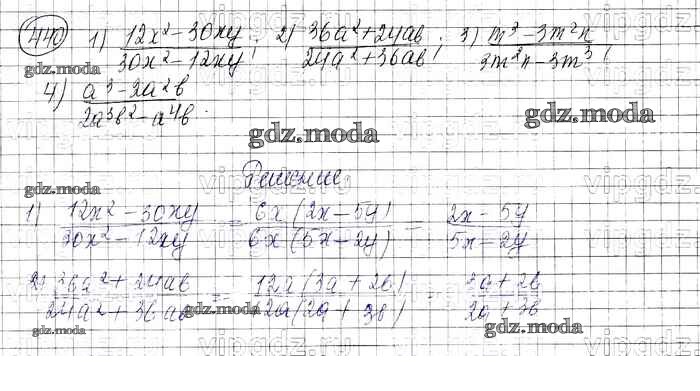 440 1) (12x² - 30xy)/(30x² - 12xy); 2) (36a² + 24ab)/(24a² + 36ab); 3) (m³ - 3m²n)/(3m²n - 3m³);
gdz.moda
4) (a³ - 2a²b)/(2a³b² - a⁴b).
gdz.moda
Решение
gdz.moda
1) (12x² - 30xy)/(30x² - 12xy) = 6x(2x - 5y)/6x(5x - 2y) = (2x - 5y)/(5x - 2y)
2) (36a² + 24ab)/(24a² + 36ab) = 12a(3a + 2b)/12a(2a + 3b) = (3a + 2b)/(2a + 3b)
gdz.moda
gdz.moda
gdz.moda
vipgdz.ru